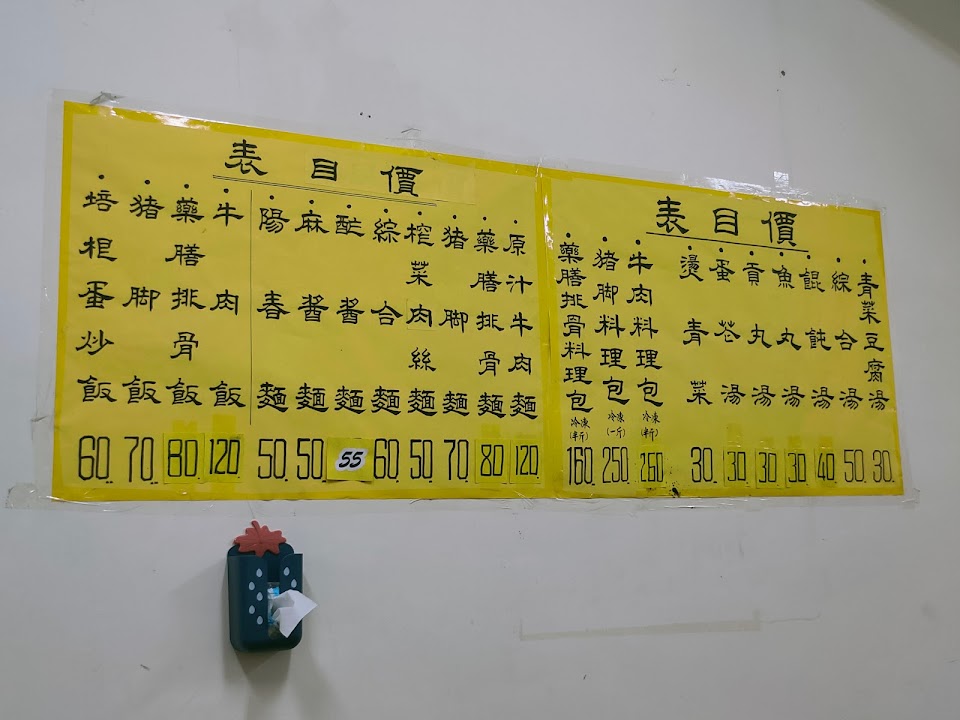 價目表
青菜豆腐湯 30.
綜合湯 50.
餛飩湯 40
魚丸湯 30
貢丸湯 30
蛋花湯 30
燙青菜 30
牛肉料理包 冷凍(半斤) 260
猪脚料理包 冷凍(一斤) 250
藥膳排骨料理包 冷凍(半斤) 160
價目表
原汁牛肉麵 120
藥膳排骨麵 80
猪脚麵 70
榨菜肉絲麵 50
綜合麵 60
酢醬麵 55
麻醬麵 50
陽春麵 50
牛肉飯 120
藥膳排骨飯 80
猪脚飯 70
培根蛋炒飯 60